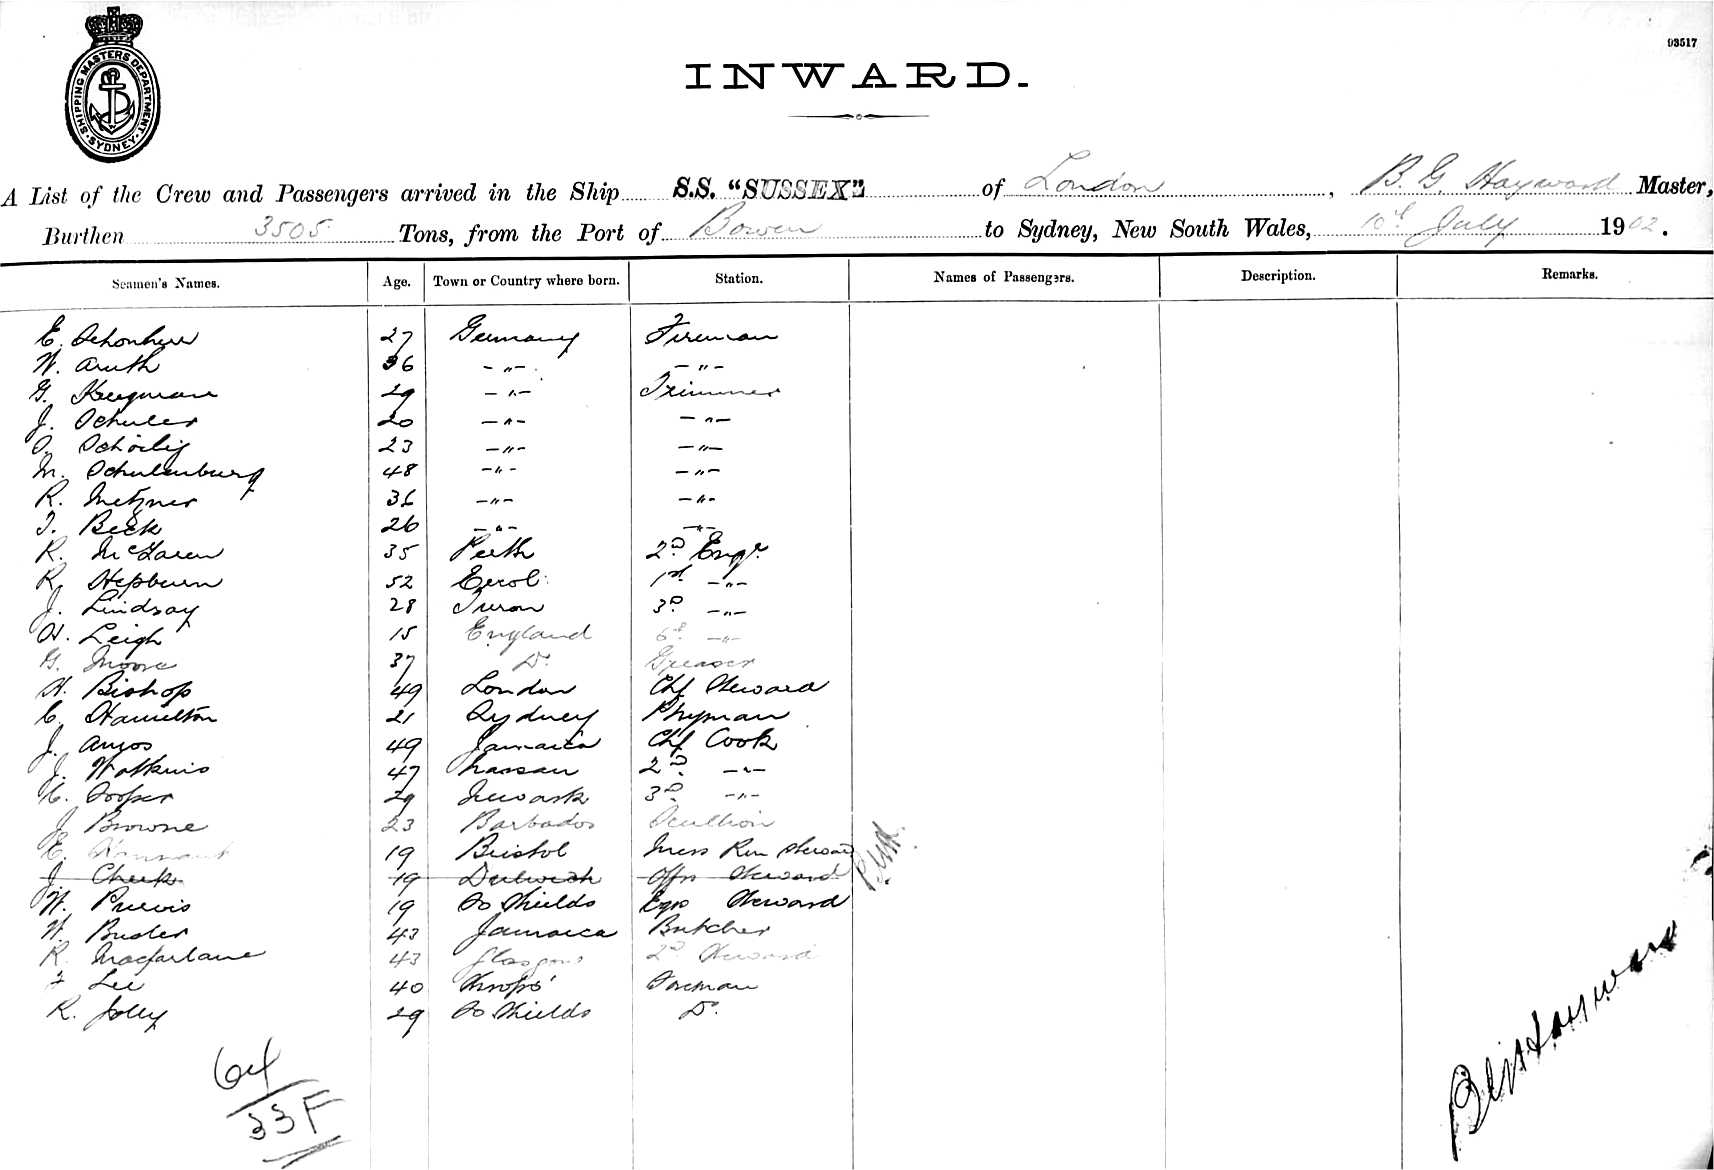 SHIPPING MASTERS DEPARTMENT · SYDNEY ·
93517
INWARD.
A List of the Crew and Passengers arrived in the Ship S.S. "SUSSEX" of London, B. G Hayward Master,
Burthen 3505 Tons, from the Port of Bowen to Sydney, New South Wales, 10th July 1902.
Seamen's Names. Age. Town or Country where born. Station. Names of Passengers. Description. Remarks.
E. Schonherr 27 Germany Fireman
W. 36 -"- -"-
G. 29 -"- Trimmer
J. Schuler 20 -"- -"-
O. 23 -"- -"-
M. Schulenburg 48 -"- -"-
R. Metzner 36 -"- -"-
T. Beck 26 -"- -"-
R. McLaren 35 Perth 2D Engr.
R. Hepburn 52 Errol 1st -"-
J. Lindsay 28 3D -"-
Leigh 15 England -"-
G. Moore 37 Do. Greaser
H. Bishop 49 London Chf Steward
C. Hamilton 21 Sydney
J. Amos 49 Jamaica Chf Cook
J. Watkins 47 Nassau 2D -"-
Cooper 29 Newark 3D -"-
J. Browne 23 Barbados Scullion
E. 19 Bristol Mess Rm Steward
J Cheek 19 Dulwich Offrs Steward
W. Purvis 19 So Shields Egrs Steward
W. Butler 43 Jamaica Butcher
R. Macfarlane 43 Glasgow 2D Steward
F Lee 40 Shrops Foreman
R. Jolly 29 So Shields Do.
64
33F
B G Hayward